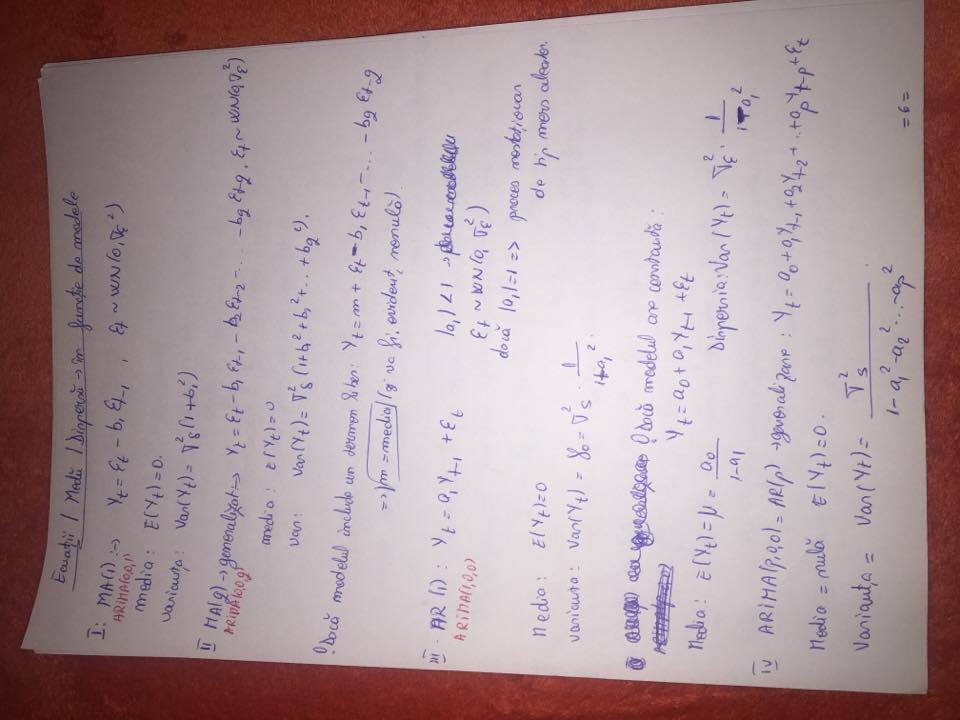 Ecuații / Medii / Dispersă → în funcție de modele
I: MA(1) :→ Yt = εt - b1 εt-1 , εt ~ WN(0, σε²)
ARIMA(0,0,1)
media : E(Yt) = 0.
varianta : Var(Yt) = σε²(1+b1²)
II MA(q) → generalizat → Yt = εt - b1 εt-1 - b2 εt-2 - ... - bq εt-q , εt ~ WN(0, σε²)
ARIMA(0,0,q)
media : E(Yt) = 0
var : Var(Yt) = σε²(1+b1²+b2²+...+bq²).
! Dacă modelul include un termen liber : Yt = m + εt - b1 εt-1 - ... - bq εt-q
=> m = media (și va fi, evident, nenulă)
III. AR(1) : Yt = a1 Yt-1 + εt |a1| < 1 →
ARIMA(1,0,0)
εt ~ WN(0, σε²)
dacă |a1| = 1 => proces nestaționar
de tip mers aleator.
Media : E(Yt) = 0
varianta : Var(Yt) = γ0 = σε² · 1/(1-a1²).
! Dacă modelul are constanta :
Yt = a0 + a1 Yt-1 + εt
Media : E(Yt) = μ = a0/(1-a1) Dispersia : Var(Yt) = σε² · 1/(1-a1²)
IV ARIMA(p,0,0) = AR(p) → generalizare : Yt = a0 + a1Yt-1 + a2Yt-2 + ... + apYt-p + εt
Media = nulă E(Yt) = 0.
Varianța = Var(Yt) = σε²/(1 - a1² - a2² ... - ap²)
= 6 =